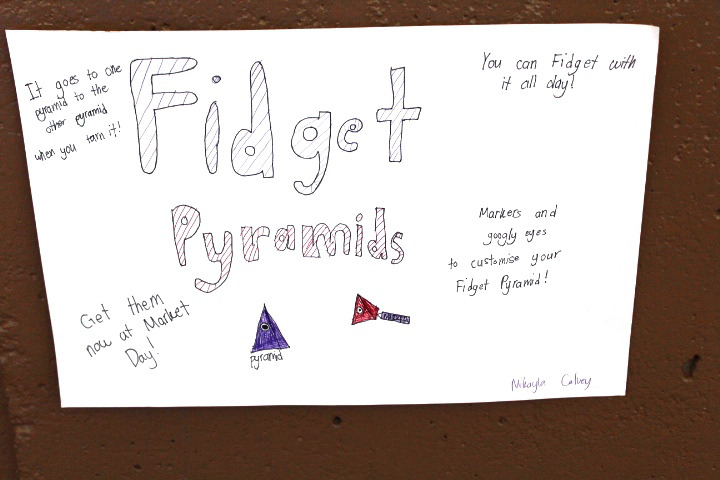 It goes to one
pyramid to the
other pyramid
when you turn it!
Fidget
Pyramids
You can Fidget with
it all day!
Markers and
googly eyes
to customise your
Fidget Pyramid!
Get them
now at Market
Day!
pyramid
Mikayla Calvey